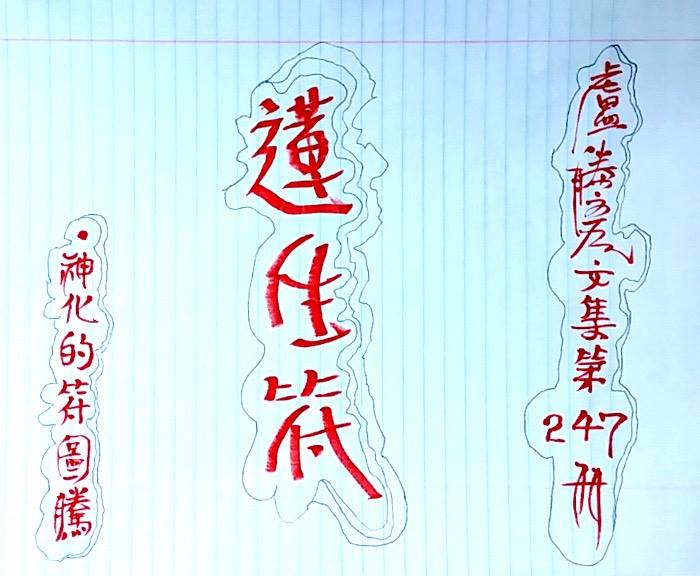 盧勝彥文集第247冊
蓮生符
•神化的符圖騰